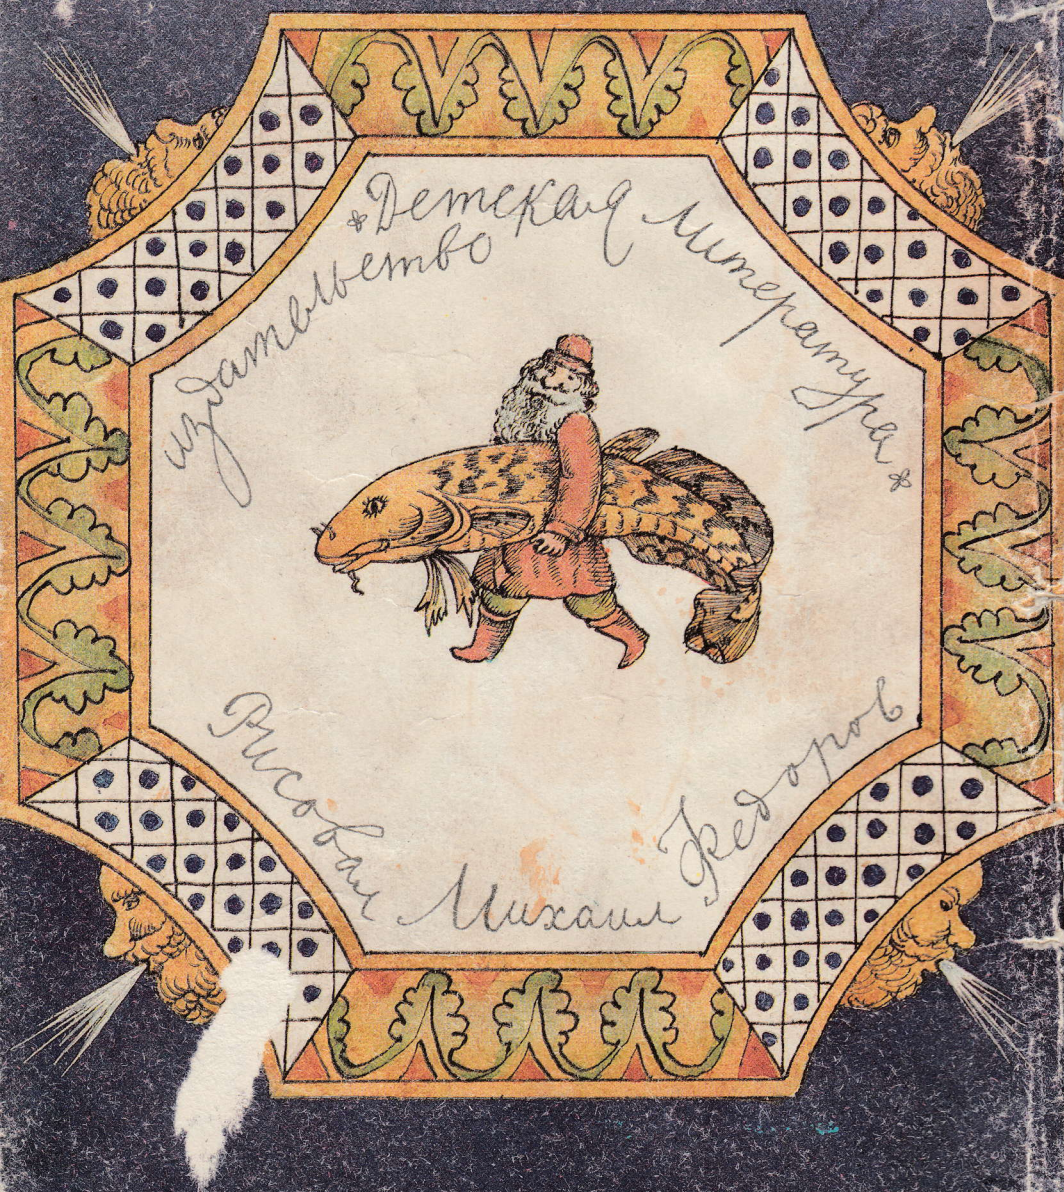 издательство
*Детская Литература*
Рисовал Михаил Федоров